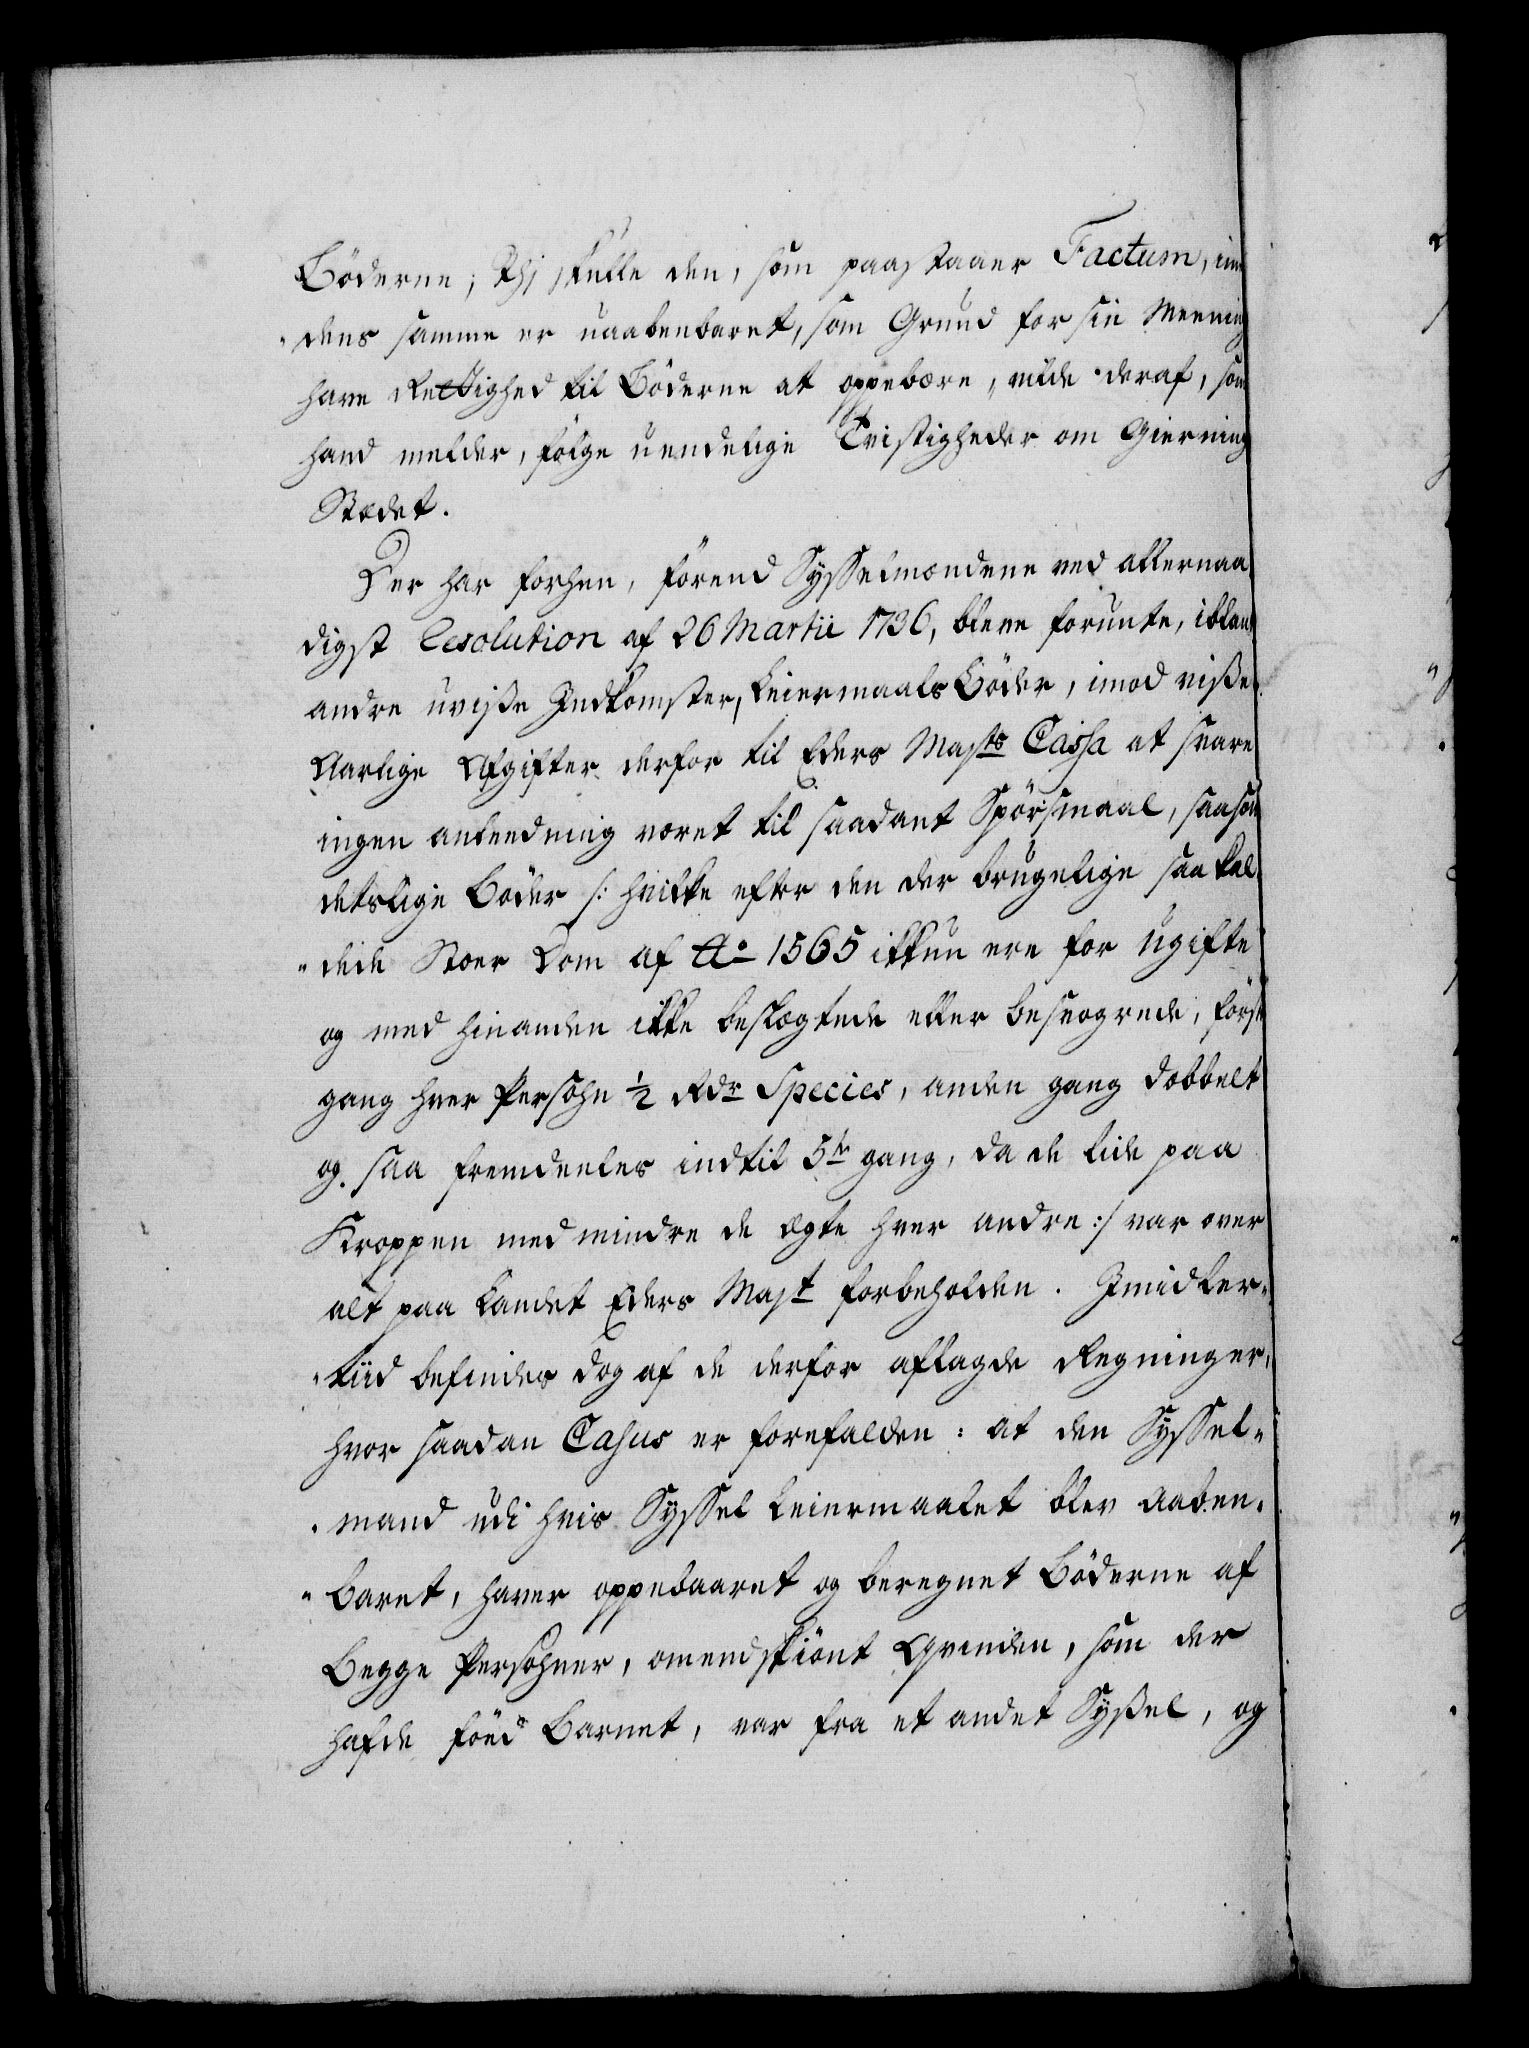 Böderne; Thj skulle den, som paastaaer Factum, in¬
„dens samme er uaabenbaret, som Grund for sin Meening
have Rettighed til Böderne at oppebære, vilde deraf, som
hand melder, følge uendelige Tvistigheder om Giernings
Stædet.
Der har forhen, förend Sysselmændene ved allernaa
digst Resolution af 26 Martii 1736, bleve forunte, iblant
andre uvisse Indkomster, Leiermaals Böder, imod visse
Aarlige Afgifter derfor til Eders Majts Cassa at svare
ingen anleedning været til saadant Spörsmaal, saasom
detslige Böder /: hvilke efter den der brugelige saa kal
„dede Stoer Dom af Ao 1565 ikkun ere for ugifte
og med hinanden ikke beslægtede eller besvogrede, förste
gang hver Persohn ½ Rdr Species, anden gang dobbelt
og saa fremdeeles indtil 5te gang, da de lide paa
Kroppen med mindre de ægte hver andre :/ var over
alt paa Landet Eders Majt forbeholden. Imidler„
„tiid befindes dog af de derfor aflagde Regninger,
hvor saadan Casus er forefalden: at den Syssel„
„mand udi hvis Syssel Leiermaalet blev aaben„
„baret, haver oppebaaret og beregnet Böderne af
Begge Persohner, omendskiönt Qvinden, som der
hafde föed Barnet, var fra et andet Syssel, og